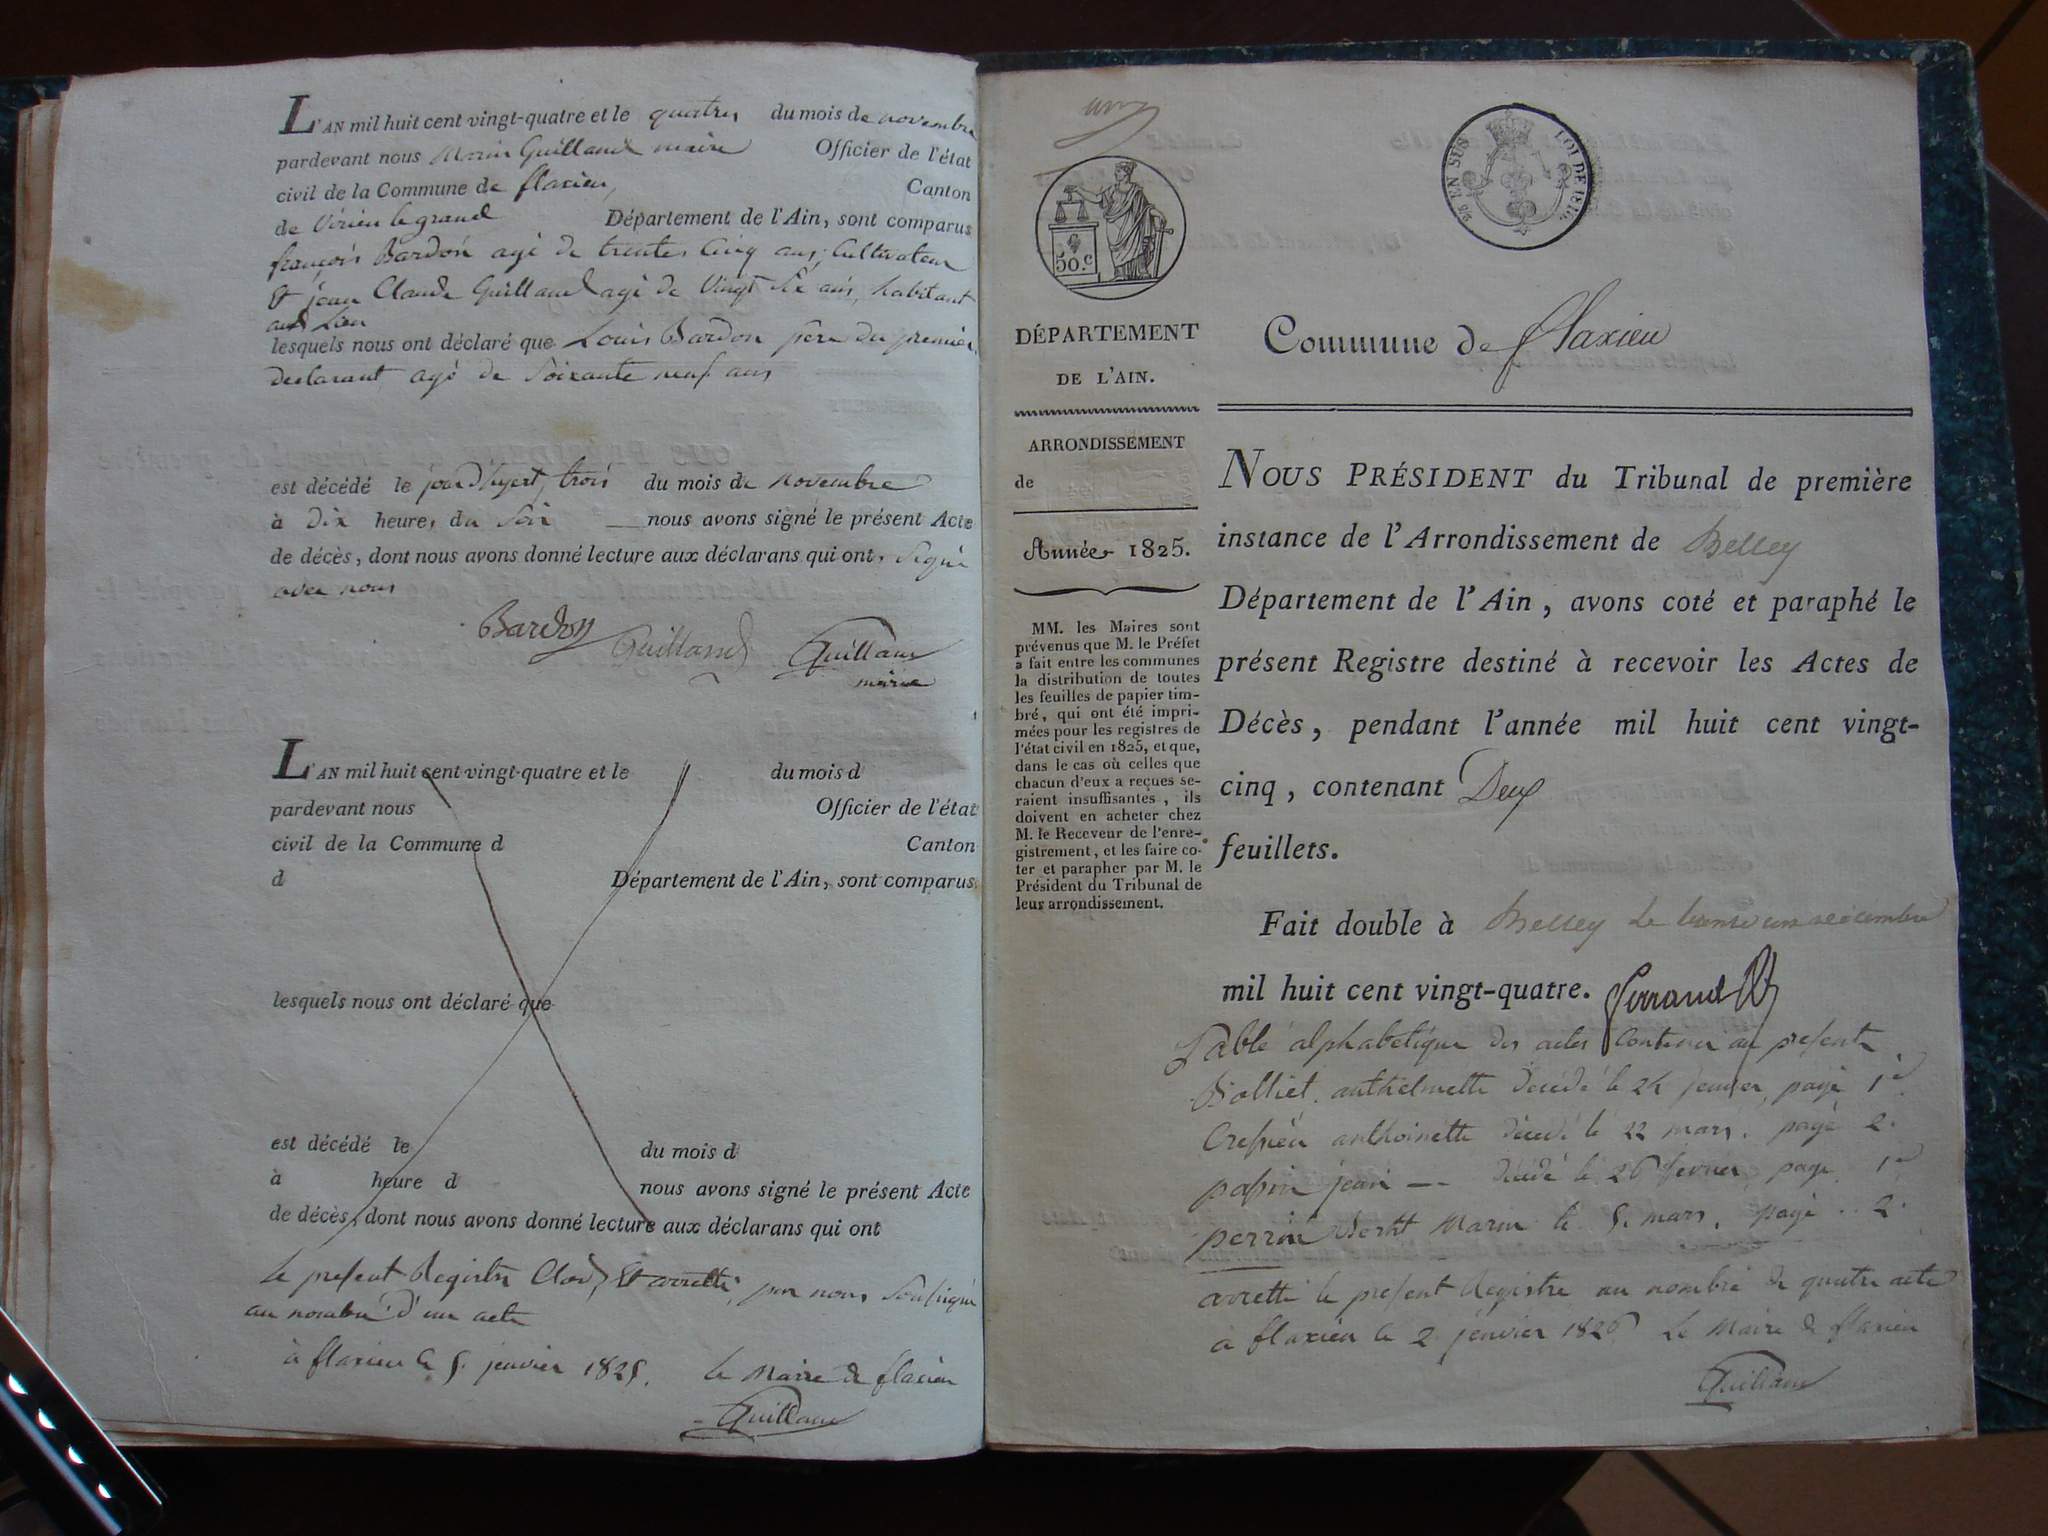 L'AN mil huit cent vingt-quatre et le quatres du mois de novembre
pardevant nous Morin Guilland maire Officier de l'état
civil de la Commune de flaxieu, Canton
de Virieu le grand Département de l'Ain, sont comparus
françois Bardon agé de trentes Cinq ans, Cultivateur
Et jean Claude Guilland agé de Vingt Six ans, habitant
aud Lieu
lesquels nous ont déclaré que Louis Bardon père du premier
declarant agé de Soixante neuf ans
est décédé le jour d'hyert, trois du mois de novembre
à dix heures du Soir nous avons signé le présent Acte
de décès, dont nous avons donné lecture aux déclarans qui ont Signé
avec nous
Bardon Guilland Guilland
maire
L'AN mil huit cent vingt-quatre et le du mois d
pardevant nous Officier de l'état
civil de la Commune d Canton
d Département de l'Ain, sont comparus
lesquels nous ont déclaré que
est décédé le du mois d
à heure d nous avons signé le présent Acte
de décès, dont nous avons donné lecture aux déclarans qui ont
Le present Registre Clos, Et arretté, par nous Soussigné
au nombre d'un acte
à flaxieu le 5. janvier 1825. le Maire de flaxieu
Guilland
25 EN SUS LOI DE 1816.
50.c
DÉPARTEMENT
DE L'AIN.
ARRONDISSEMENT
de
Année 1825.
MM. les Maires sont
prévenus que M. le Préfet
a fait entre les communes
la distribution de toutes
les feuilles de papier tim-
bré, qui ont été impri-
mées pour les registres de
l'état civil en 1825, et que,
dans le cas où celles que
chacun d'eux a reçues se-
raient insuffisantes, ils
doivent en acheter chez
M. le Receveur de l'enre-
gistrement, et les faire co-
ter et parapher par M. le
Président du Tribunal de
leur arrondissement.
Commune de flaxieu
NOUS PRÉSIDENT du Tribunal de première
instance de l'Arrondissement de Belley
Département de l'Ain, avons coté et paraphé le
présent Registre destiné à recevoir les Actes de
Décès, pendant l'année mil huit cent vingt-
cinq, contenant Deux
feuillets.
Fait double à Belley le trente un décembre
mil huit cent vingt-quatre.
Table alphabétique des actes Contenu au present
Bolliet anthelmette Décédé le 24 janvier, page 1re
Crepieu anthoinette décédé le 22 mars, page 2.
papin jean décédé le 26 fevrier, page 1re
perrin Marin le 5. mars, page 2.
arretté le present Registre au nombre de quatre acte
à flaxieu le 2 janvier 1826 Le Maire de flaxieu
Guilland